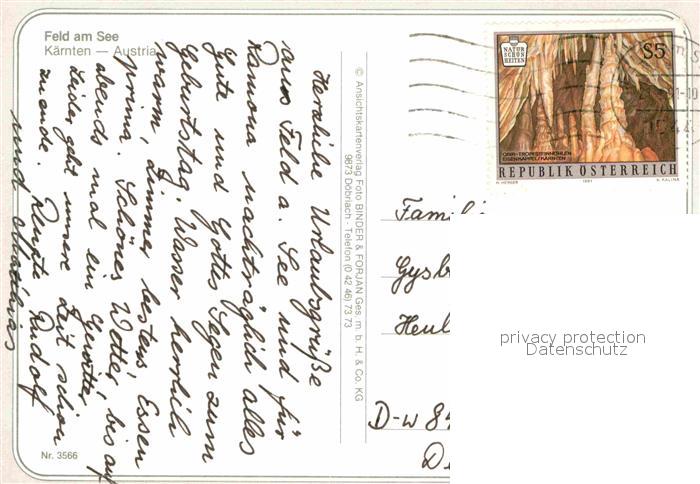 Feld am See
Kärnten — Austria
Herzliche Urlaubsgrüße
aus Feld a. See und für
Hanna nachträglich alles
Gute und Gottes Segen zum
Geburtstag. Wasser herrlich
warm, Zimmer bestens, Essen
prima. Schönes Wetter, bis auf
abends mal ein Gewitter.
Leider geht unsere Zeit schon
zu ende. Renate Rudolf
und Matthias
Nr. 3566
© Ansichtskartenverlag Foto BINDER & FORJAN Ges. m. b. H. & Co. KG
9873 Döbriach - Telefon (0 42 46) 73 73
NATUR
SCHÖN
HEITEN
S5
OBIR-TROPFSTEINHÖHLEN
EISENKAPPEL/KÄRNTEN
REPUBLIK ÖSTERREICH
H. HERGER 1991 K. KALINA
Famili
Gysb
Heul
D-W 84
D
privacy protection
Datenschutz